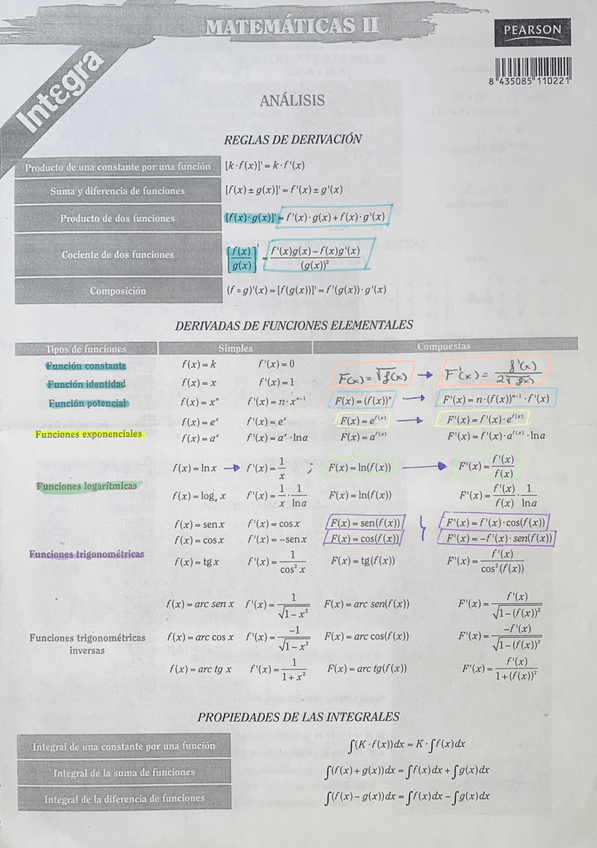 MATEMÁTICAS II
PEARSON
Intεgra
8 435085 110221
ANÁLISIS
REGLAS DE DERIVACIÓN
Producto de una constante por una función [k·f(x)]' = k·f'(x)
Suma y diferencia de funciones [f(x) ± g(x)]' = f'(x) ± g'(x)
Producto de dos funciones [f(x)·g(x)]' = f'(x)·g(x) + f(x)·g'(x)
Cociente de dos funciones [f(x)/g(x)]' = (f'(x)g(x) − f(x)g'(x))/(g(x))²
Composición (f∘g)'(x) = [f(g(x))]' = f'(g(x))·g'(x)
DERIVADAS DE FUNCIONES ELEMENTALES
Tipos de funciones Simples Compuestas
Función constante f(x) = k f'(x) = 0 F(x) = √f(x) → F'(x) = f'(x)/2√f(x)
Función identidad f(x) = x f'(x) = 1
Función potencial f(x) = xⁿ f'(x) = n·xⁿ⁻¹ F(x) = (f(x))ⁿ → F'(x) = n·(f(x))ⁿ⁻¹·f'(x)
Funciones exponenciales f(x) = eˣ f'(x) = eˣ F(x) = e^f(x) → F'(x) = f'(x)·e^f(x)
f(x) = aˣ f'(x) = aˣ·ln a F(x) = a^f(x) F'(x) = f'(x)·a^f(x)·ln a
Funciones logarítmicas f(x) = ln x → f'(x) = 1/x ; F(x) = ln(f(x)) → F'(x) = f'(x)/f(x)
f(x) = logₐ x f'(x) = 1/x · 1/ln a F(x) = ln(f(x)) F'(x) = f'(x)/f(x) · 1/ln a
Funciones trigonométricas f(x) = sen x f'(x) = cos x F(x) = sen(f(x)) F'(x) = f'(x)·cos(f(x))
f(x) = cos x f'(x) = −sen x F(x) = cos(f(x)) F'(x) = −f'(x)·sen(f(x))
f(x) = tg x f'(x) = 1/cos² x F(x) = tg(f(x)) F'(x) = f'(x)/cos²(f(x))
Funciones trigonométricas inversas f(x) = arc sen x f'(x) = 1/√(1−x²) F(x) = arc sen(f(x)) F'(x) = f'(x)/√(1−(f(x))²)
f(x) = arc cos x f'(x) = −1/√(1−x²) F(x) = arc cos(f(x)) F'(x) = −f'(x)/√(1−(f(x))²)
f(x) = arc tg x f'(x) = 1/(1+x²) F(x) = arc tg(f(x)) F'(x) = f'(x)/(1+(f(x))²)
PROPIEDADES DE LAS INTEGRALES
Integral de una constante por una función ∫(K·f(x))dx = K·∫f(x)dx
Integral de la suma de funciones ∫(f(x)+g(x))dx = ∫f(x)dx + ∫g(x)dx
Integral de la diferencia de funciones ∫(f(x)−g(x))dx = ∫f(x)dx − ∫g(x)dx